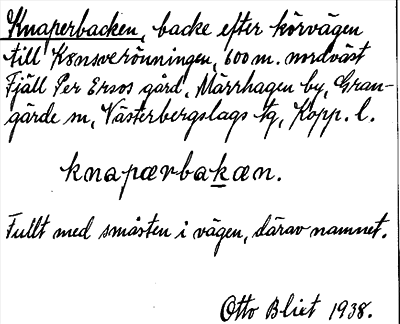 Knaperbacken, backe efter körvägen
till Konsverönningen, 600 m. nordväst
Fjäll Per Ersos gård, Märrhagen by, Gran-
gärde sn, Västerbergslags tg, Kopp. l.
knapærbakæn.
Fullt med småsten i vägen, därav namnet.
Otto Blixt 1938.